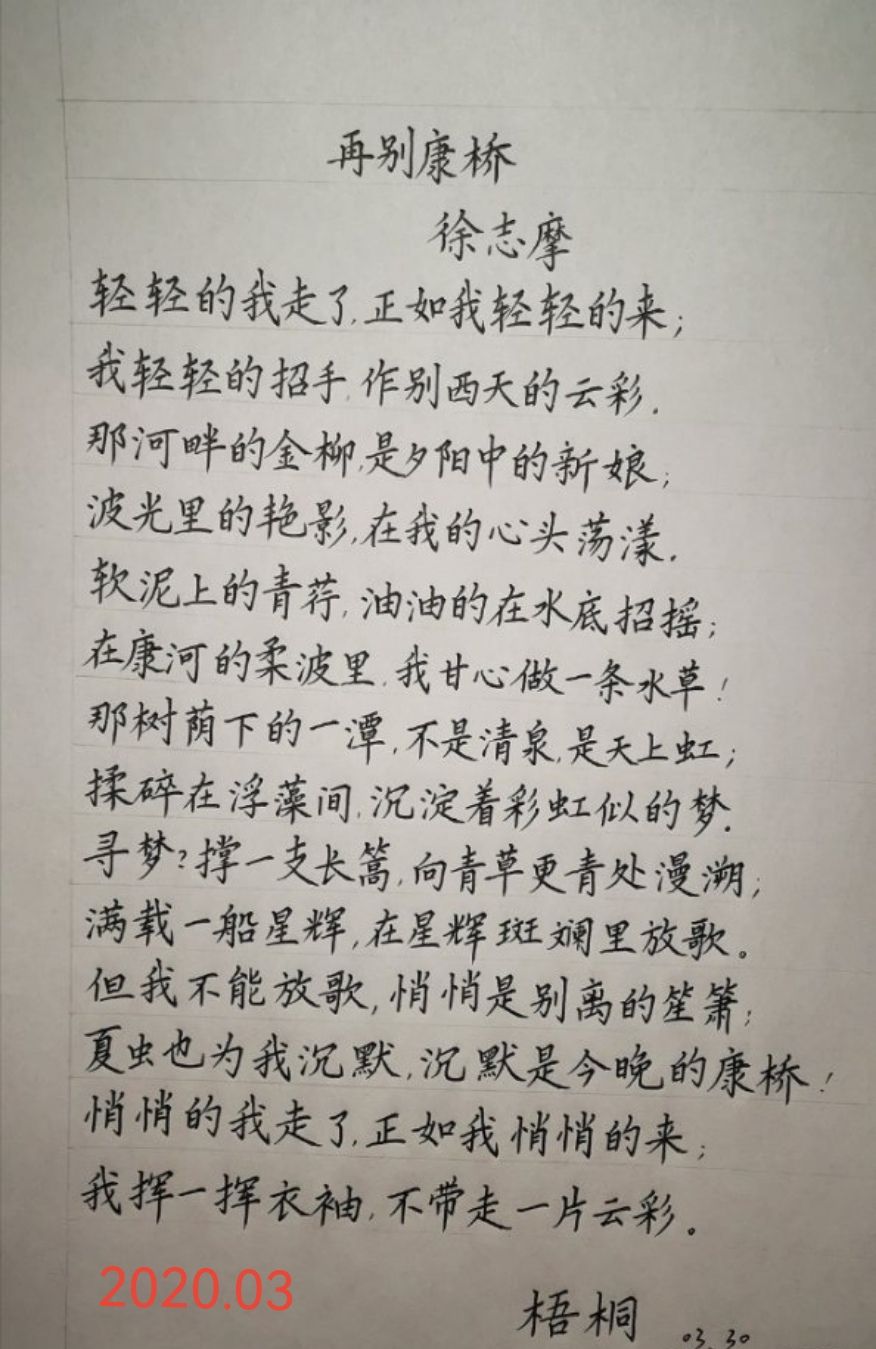 再别康桥
徐志摩
轻轻的我走了,正如我轻轻的来;
我轻轻的招手,作别西天的云彩.
那河畔的金柳,是夕阳中的新娘;
波光里的艳影,在我的心头荡漾.
软泥上的青荇,油油的在水底招摇;
在康河的柔波里,我甘心做一条水草!
那树荫下的一潭,不是清泉,是天上虹;
揉碎在浮藻间,沉淀着彩虹似的梦.
寻梦?撑一支长篙,向青草更青处漫溯;
满载一船星辉,在星辉斑斓里放歌。
但我不能放歌,悄悄是别离的笙箫;
夏虫也为我沉默,沉默是今晚的康桥!
悄悄的我走了,正如我悄悄的来;
我挥一挥衣袖,不带走一片云彩。
2020.03
梧桐 03.30